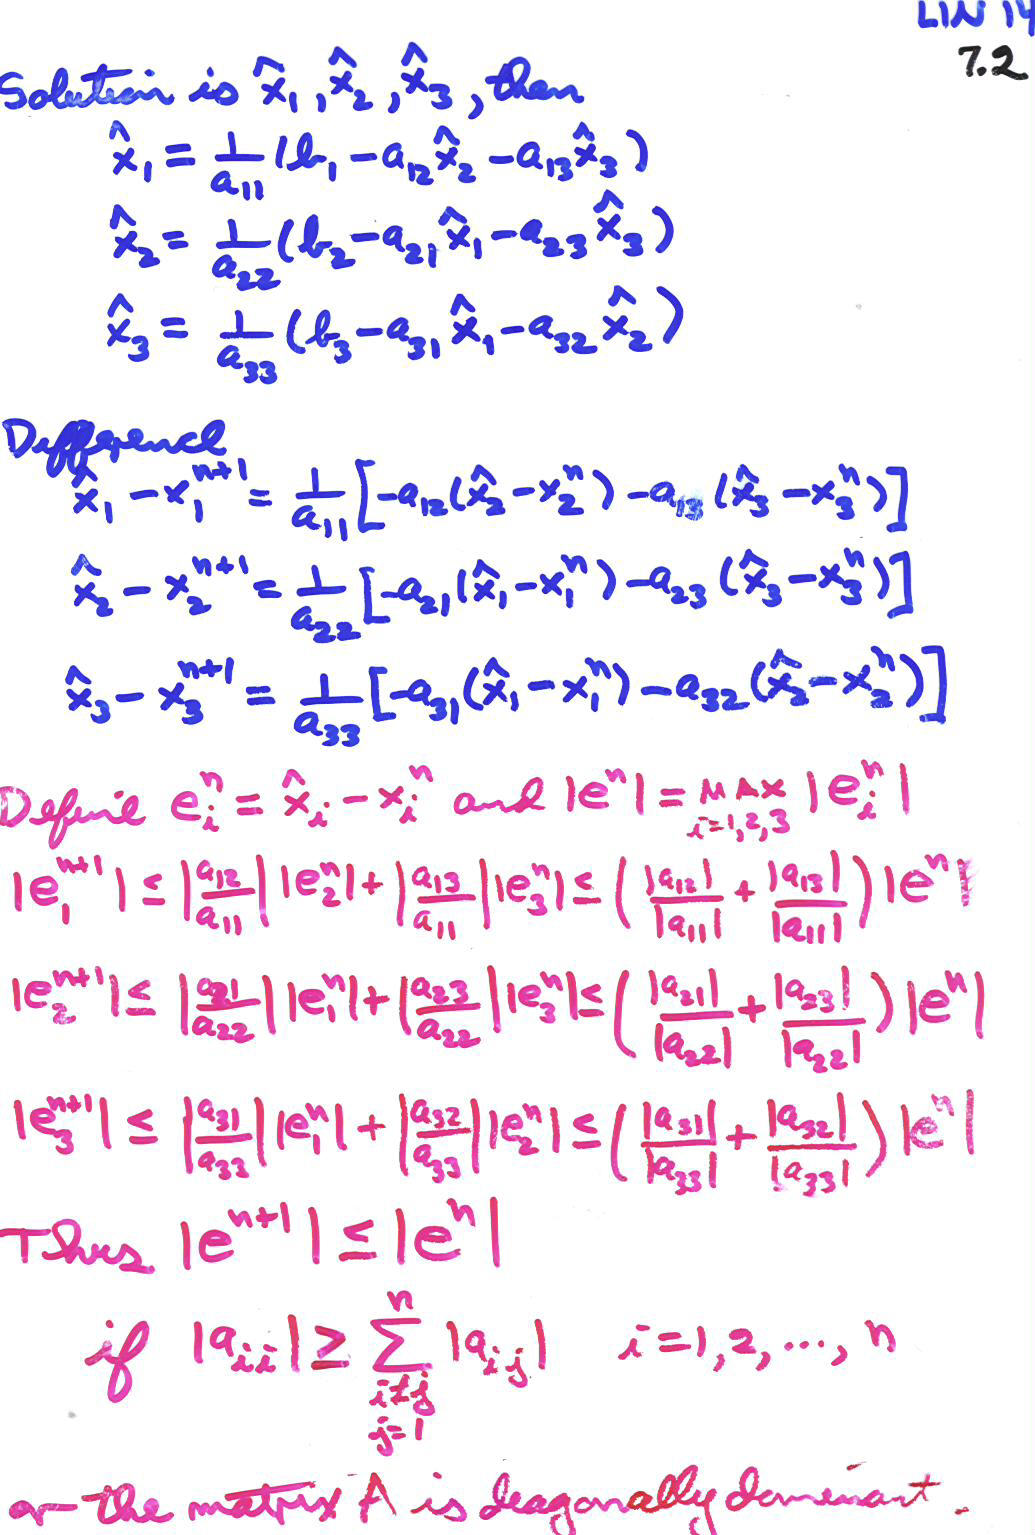 LIN 14
7.2
Solution is x̂₁, x̂₂, x̂₃, then
x̂₁ = 1/a₁₁ (b₁ - a₁₂x̂₂ - a₁₃x̂₃)
x̂₂ = 1/a₂₂ (b₂ - a₂₁x̂₁ - a₂₃x̂₃)
x̂₃ = 1/a₃₃ (b₃ - a₃₁x̂₁ - a₃₂x̂₂)
Difference
x̂₁ - x₁ⁿ⁺¹ = 1/a₁₁ [-a₁₂(x̂₂ - x₂ⁿ) - a₁₃(x̂₃ - x₃ⁿ)]
x̂₂ - x₂ⁿ⁺¹ = 1/a₂₂ [-a₂₁(x̂₁ - x₁ⁿ) - a₂₃(x̂₃ - x₃ⁿ)]
x̂₃ - x₃ⁿ⁺¹ = 1/a₃₃ [-a₃₁(x̂₁ - x₁ⁿ) - a₃₂(x̂₂ - x₂ⁿ)]
Define eᵢⁿ = x̂ᵢ - xᵢⁿ and |eⁿ| = MAX i=1,2,3 |eᵢⁿ|
|e₁ⁿ⁺¹| ≤ |a₁₂/a₁₁| |e₂ⁿ| + |a₁₃/a₁₁| |e₃ⁿ| ≤ (|a₁₂|/|a₁₁| + |a₁₃|/|a₁₁|) |eⁿ|
|e₂ⁿ⁺¹| ≤ |a₂₁/a₂₂| |e₁ⁿ| + |a₂₃/a₂₂| |e₃ⁿ| ≤ (|a₂₁|/|a₂₂| + |a₂₃|/|a₂₂|) |eⁿ|
|e₃ⁿ⁺¹| ≤ |a₃₁/a₃₃| |e₁ⁿ| + |a₃₂/a₃₃| |e₂ⁿ| ≤ (|a₃₁|/|a₃₃| + |a₃₂|/|a₃₃|) |eⁿ|
Thus |eⁿ⁺¹| ≤ |eⁿ|
if |aᵢᵢ| ≥ Σ n i≠j j=1 |aᵢⱼ| i=1,2,...,n
or the matrix A is diagonally dominant.